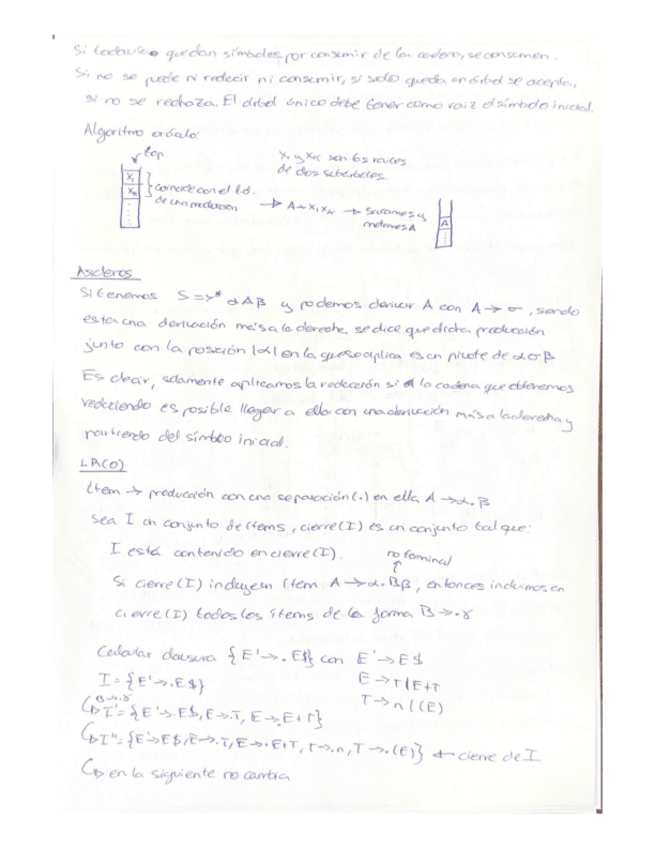 Si todavía quedan símbolos por consumir de la cadena, se consumen.
Si no se puede ni reducir ni consumir, si solo queda un árbol se acepta,
si no se rechoza. El árbol único debe tener como raiz el símbolo inicial.
Algoritmo
top
X₁ y Xₖ son las raices
de dos subárboles
X₁
Xₖ
coincide con el l.d.
de una producción
→ A→X₁Xₖ → Sacamos y
metemos A
A
Si tenemos S ⇒* αAβ y podemos derivar A con A→σ, siendo
esta una derivación más a la derecha, se dice que dicha producción
junto con la posición |α| en la que se aplica es un pivote de ασβ
Es decir, solamente aplicamos la reducción si a la cadena que obtenemos
reduciendo es posible llegar a ella con una derivación más a la derecha y
partiendo del símbolo inicial.
LR(0)
Ítem → producción con una separación (.) en ella A→α.β
Sea I un conjunto de ítems, cierre(I) es un conjunto tal que:
I está contenido en cierre(I).
no terminal
Si cierre(I) incluye un ítem A→α.Bβ, entonces incluimos en
cierre(I) todos los ítems de la forma B→.γ
Calcular clausura {E'→.E$} con E'→E$
I = {E'→.E$}
E→T|E+T
B→.γ
T→n|(E)
I' = {E'→.E$, E→.T, E→.E+T}
I'' = {E'→.E$, E→.T, E→.E+T, T→.n, T→.(E)} ← cierre de I
en la siguiente no cambia